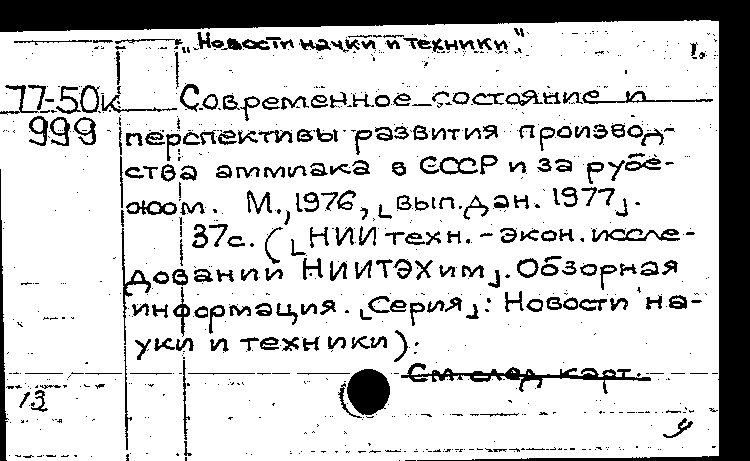 „Новости науки и техники“
1.
77-50к Современное состояние и
999 перспективы развития производ-
ства аммиака в СССР и за рубе-
жом. М., 1976, [вып.дан. 1977].
37с. ([НИИ техн.-экон.иссле-
дований НИИТЭХим]. Обзорная
информация. [Серия]: Новости на-
уки и техники).
См.след.карт.
13